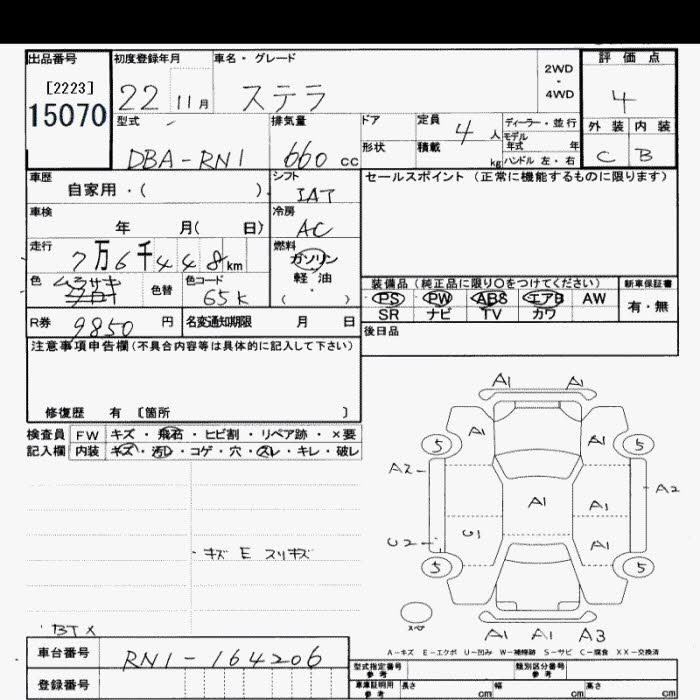 出品番号 初度登録年月 車名・グレード 2WD ・ 4WD 評価点
[2223] 15070 22 11月 ステラ 4
型式 排気量 ドア 定員 4人 ディーラー・並行 外装 内装
モデル年式 年
DBA-RN1 660cc 形状 積載 kg ハンドル 左・右 C B
車歴 シフト セールスポイント(正常に機能するものに限ります)
自家用・( ) IAT
車検 冷房
年 月( 日) AC
走行 燃料
7万6千448km ガソリン
軽・油
( )
色 ムラサキ 色替 色コード 65K
装備品(純正品に限り〇をつけてください) 新車保証書
PS PW ABS エアB AW 有・無
SR ナビ TV カワ
R券 9850円 名変通知期限 月 日
後日品
注意事項申告欄(不具合内容等は具体的に記入して下さい)
修復歴 有 〔箇所 〕
検査員 FW キズ・飛石・ヒビ割・リペア跡・×要
記入欄 内装 キズ・汚レ・コゲ・穴・スレ・キレ・破レ
A1 A1
A1 A1
5 5
A2 A2
A1 A1
U1 A1
U2
5 5
スペア
A1 A1 A3
・キズ E スリキズ
BTX
A-キズ E-エクボ U-凹み W-補修跡 S-サビ C-腐食 XX-交換済
車台番号 RN1-164206
登録番号
型式指定番号 参考 類別区分番号 参考
車庫証明用 参考 長さ cm 幅 cm 高さ cm